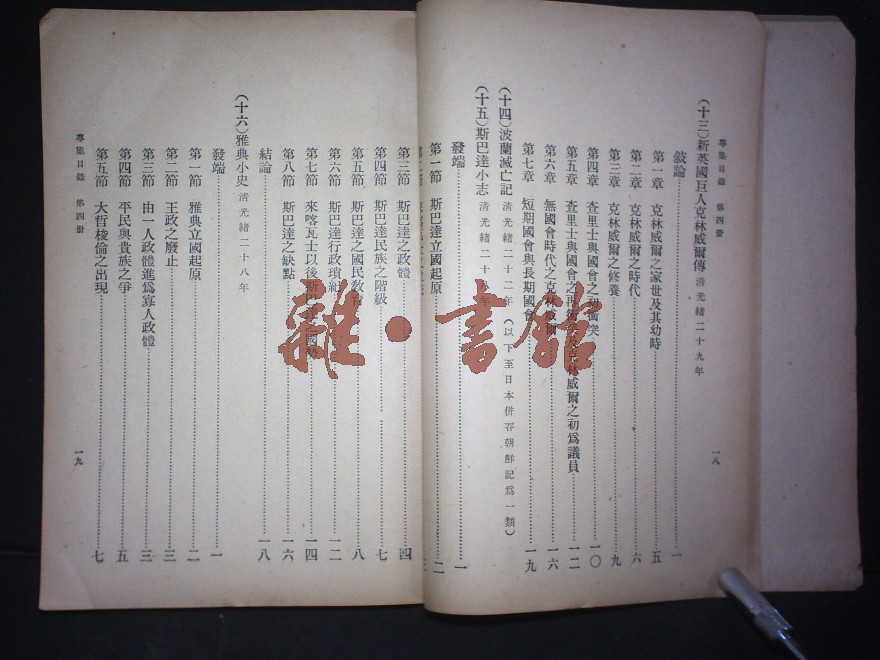 專集目錄 第四册
一八
(十三)新英國巨人克林威爾傳 清光緒二十九年
敍論 一
第一章 克林威爾之家世及其幼時 五
第二章 克林威爾之時代 六
第三章 克林威爾之修養 九
第四章 查里士與國會之初衝突 一〇
第五章 查里士與國會之再衝突及克林威爾之初爲議員 一二
第六章 無國會時代之克林威爾 一六
第七章 短期國會與長期國會 一九
(十四)波蘭滅亡記 清光緒二十二年 (以下至日本併吞朝鮮記爲一類)
(十五)斯巴達小志 清光緒二十八年
發端 一
第一節 斯巴達立國起原 二
第三節 斯巴達之政體 四
第四節 斯巴達民族之階級 七
第五節 斯巴達之國民教育 八
第六節 斯巴達行政瑣紀 一二
第七節 來喀瓦士以後斯巴達之國勢 一四
第八節 斯巴達之缺點 一六
結論 一八
(十六)雅典小史 清光緒二十八年
發端 一
第一節 雅典立國起原 二
第二節 王政之廢止 三
第三節 由一人政體進爲寡人政體 三
第四節 平民與貴族之爭 五
第五節 大哲梭倫之出現 七
專集目錄 第四册
一九
雜·書館